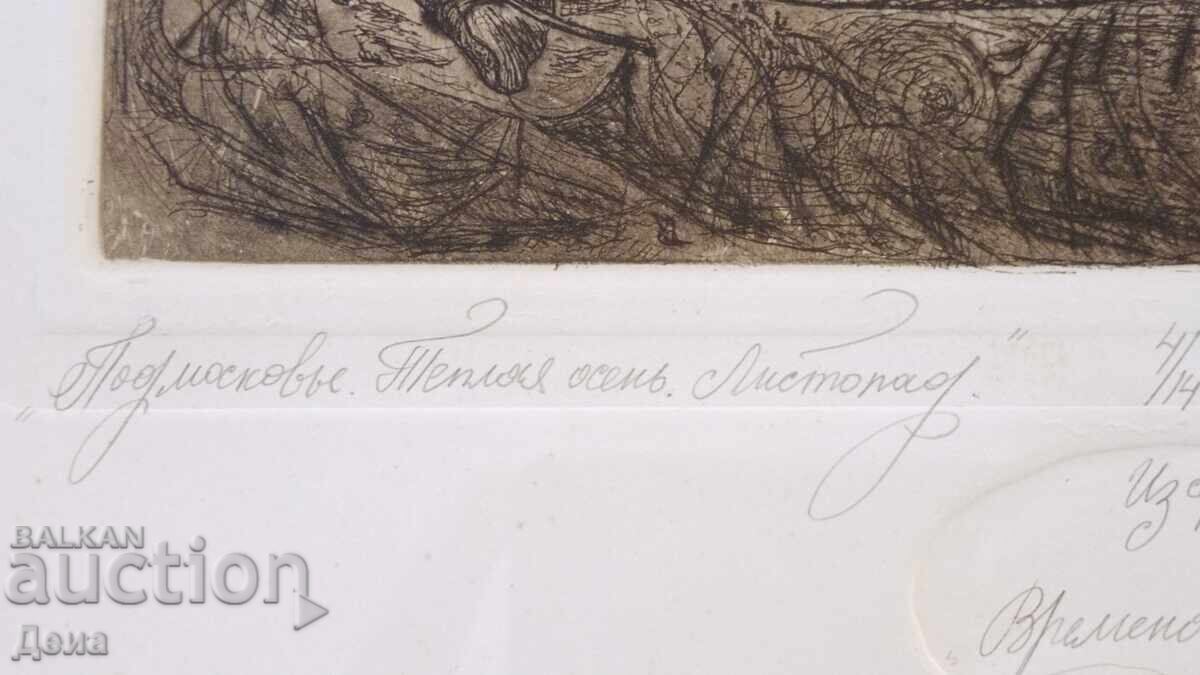 „Подмосковье. Теплая осень. Листопад." 4/14
Из
„Времена
BALKAN
auction
Деиа